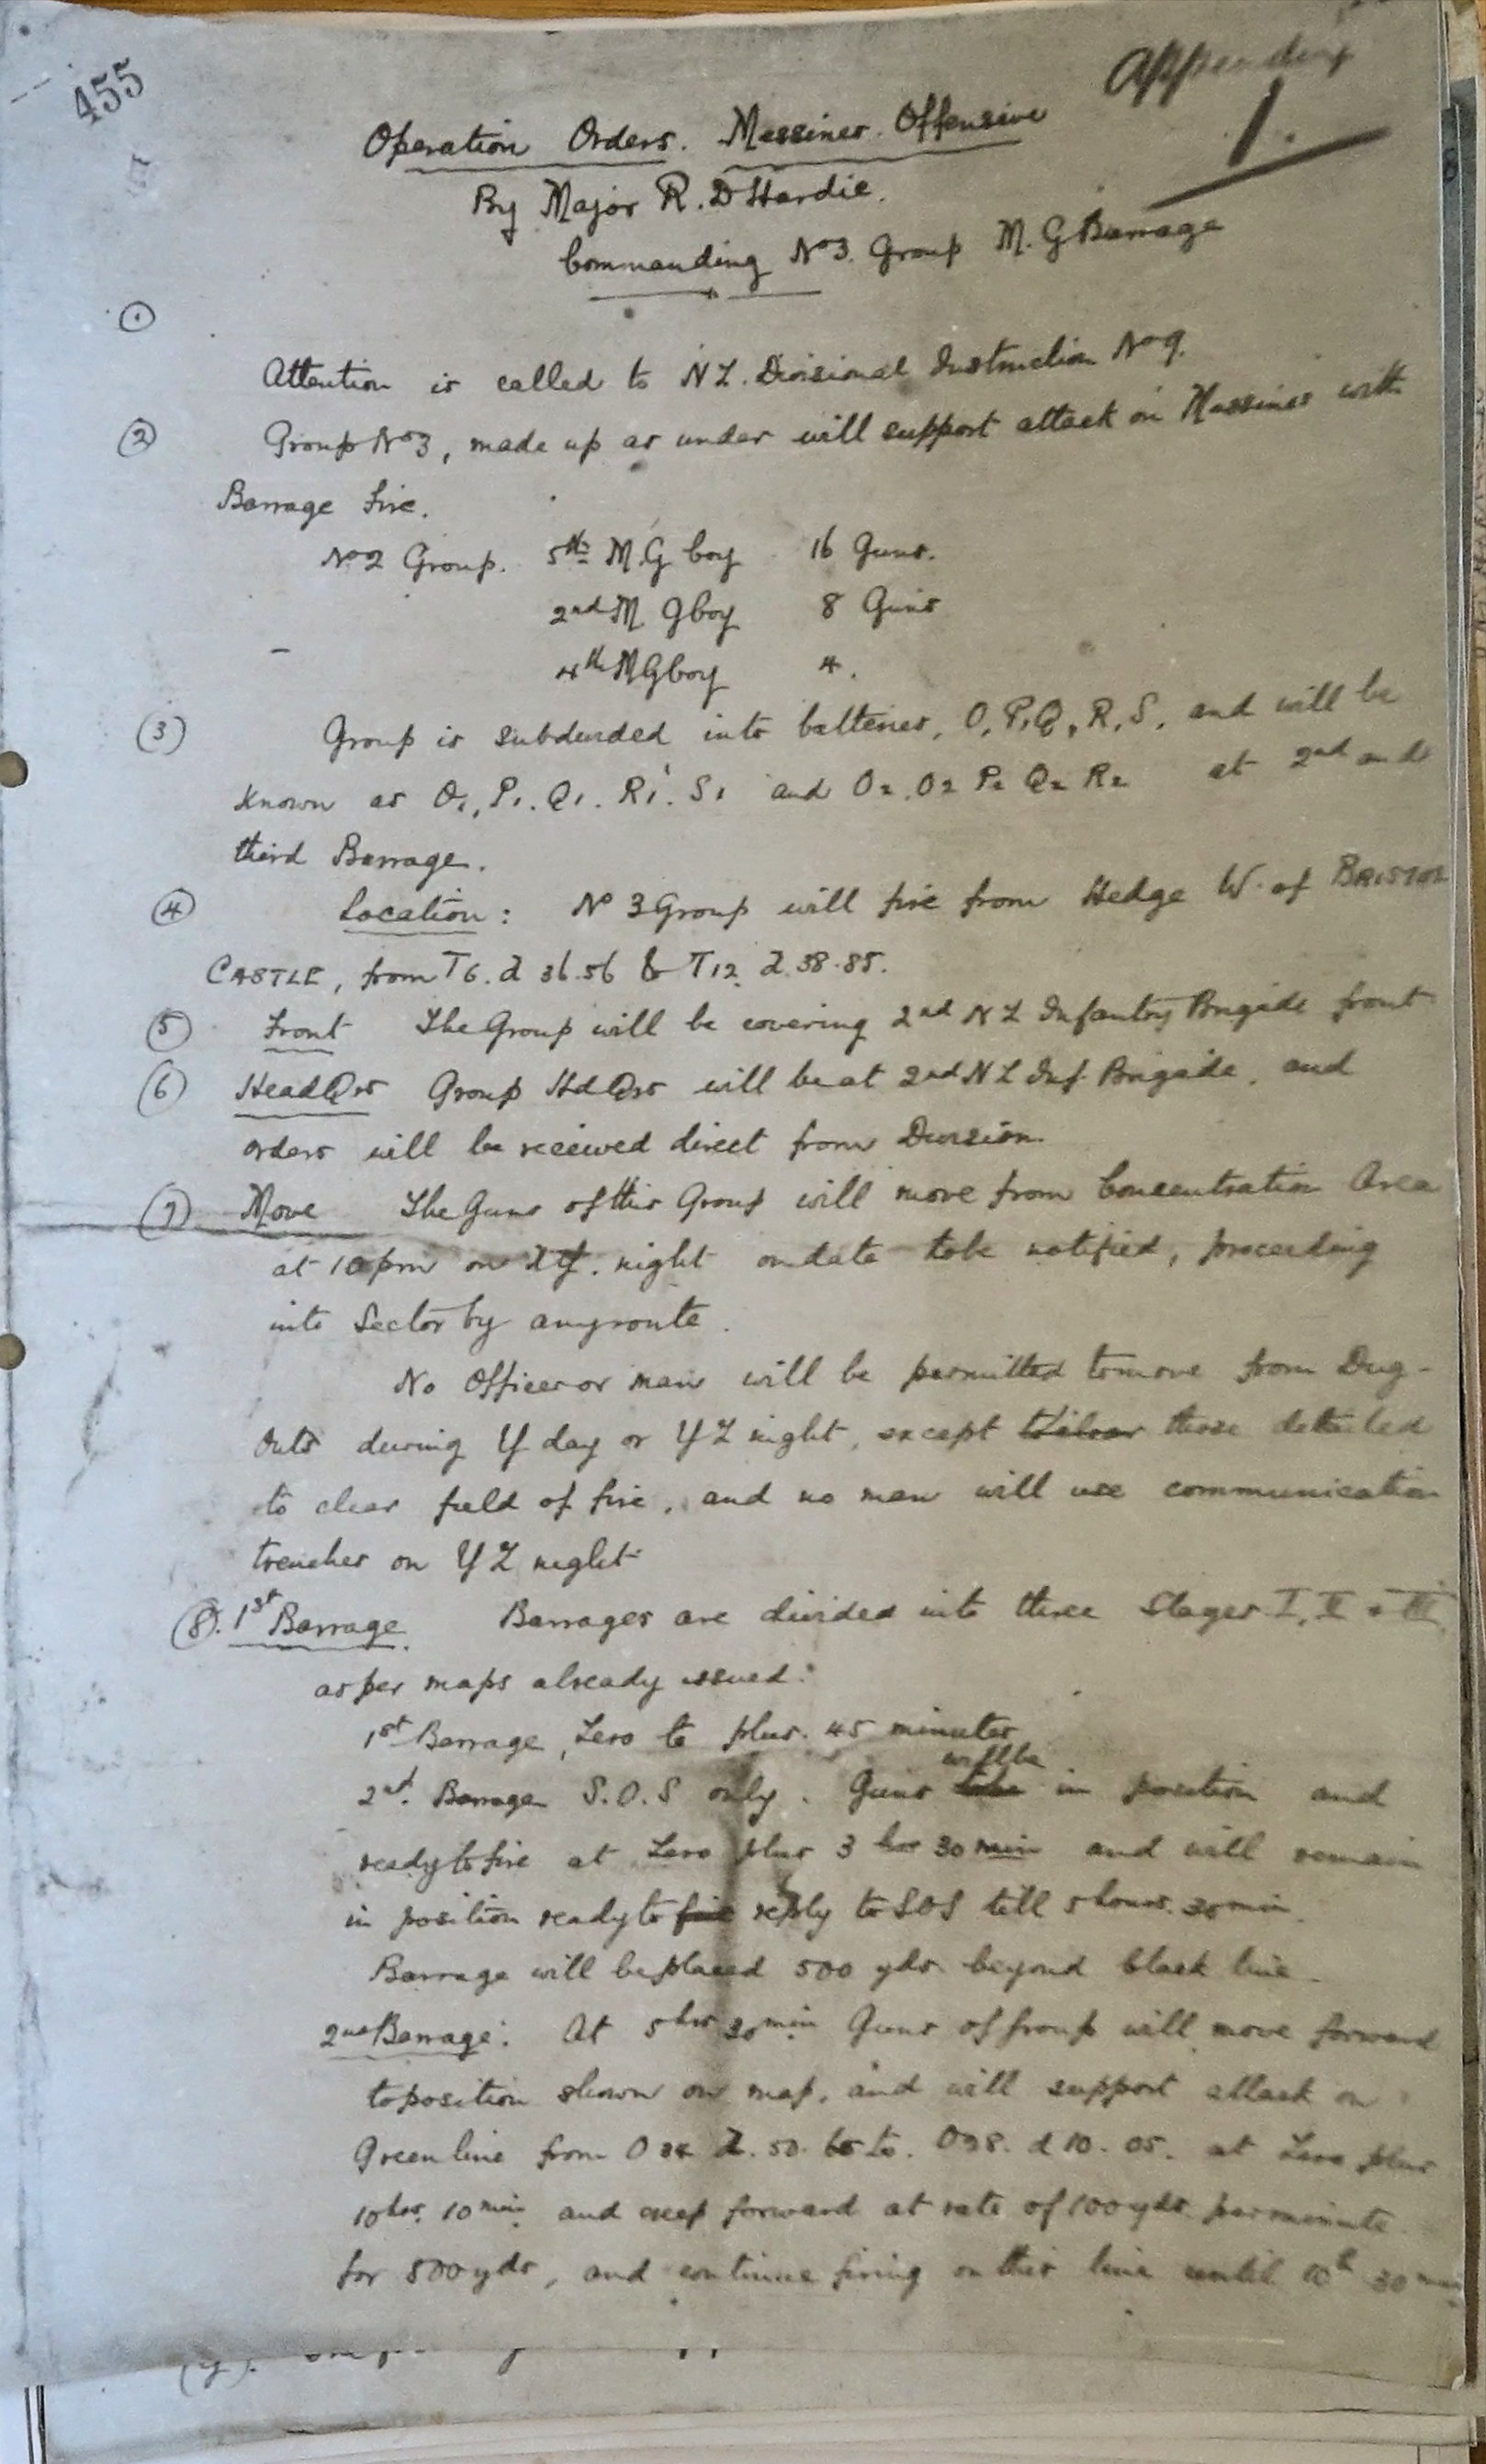 455
Appendix
1.
Operation Orders. Messines. Offensive
By Major R. D Hardie.
Commanding No 3. Group M. G Barrage
①
Attention is called to N Z. Divisional Instruction No 9.
② Group No 3, made up as under will support attack on Messines with
Barrage fire.
No 2 Group. 5th M.G Coy 16 Guns.
2nd M. G Coy 8 Guns
4th M G Coy 4.
(3) Group is subdivided into batteries, O, P, Q, R, S, and will be
known as O1, P1. Q1. R1. S1 and O2. O2 P2 Q2 R2 at 2nd and
third Barrage.
④ Location: No 3 Group will fire from Hedge W. of BRISTOL
CASTLE, from T6. d 36.56 to T12. d.38.85.
⑤ Front The Group will be covering 2nd N Z Infantry Brigade front
⑥ Head Qrs Group Hd Qrs will be at 2nd N Z Inf. Brigade, and
orders will be received direct from Division.
⑦ Move The Guns of this Group will move from Concentration Area
at 10 pm on night on date to be notified, proceeding
into Sector by any route.
No Officer or man will be permitted to move from Dug-
Outs during Y day or Y Z night, except those detailed
to clear field of fire, and no man will use communication
trenches on Y Z night
⑧. 1st Barrage. Barrages are divided into three Stages I, II & III
as per maps already issued:
1st Barrage, Zero to plus. 45 minutes
will be
2nd. Barrage S.O.S only. Guns in position and
ready to fire at Zero plus 3 hrs 30 min and will remain
in position ready to fire reply to SOS till 5 hours. 30 min.
Barrage will be placed 500 yds beyond black line.
2nd Barrage: At 5 hrs 30 min Guns of Group will move forward
to position shown on map, and will support attack on
Green line from O 34 d. 50. to. d 10. 05. at Zero plus
10 hrs. 10 min and creep forward at rate of 100 yds per minute
for 500 yds, and continue firing on this line until 10h 30 min